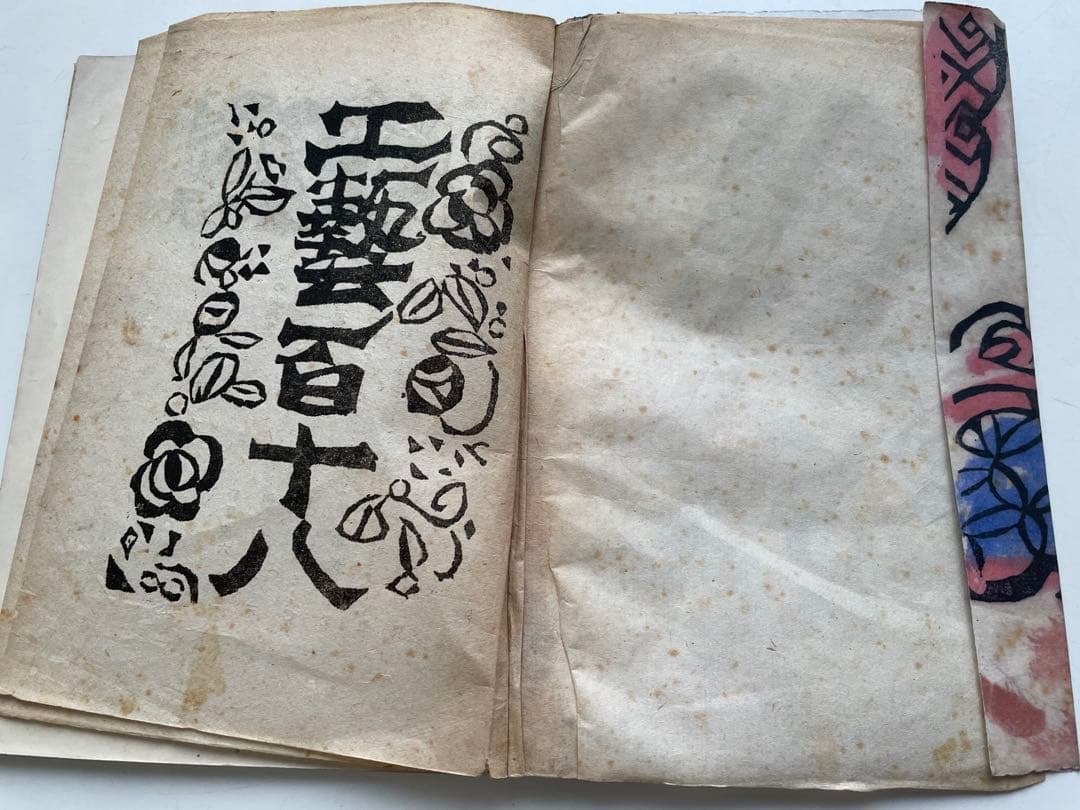 工藝百十八